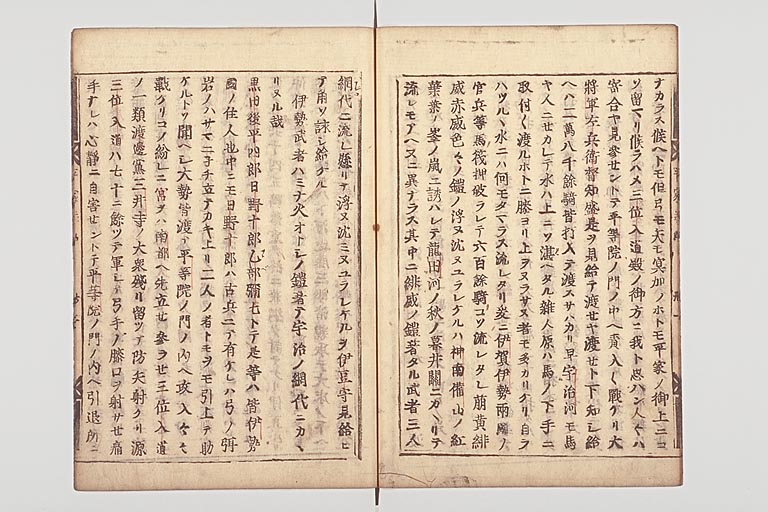 ナカラス候ヘトモ但弓モ夫モ冥加ノホトモ平家ノ御上ニコ
ソ留マリ候ラハメ三位入道殿ノ御方ニ我ト思ハン人々ハ
寄合ヤ見參セントテ平等院ノ門ノ中ヘ責入〻戰ケリ大
將軍左兵衛督知盛是ヲ見給テ渡セヤ渡セト下知シ給
ヘハ二萬八千餘騎皆打入テ渡スサハカリ早宇治河モ馬
ヤ人ニセカレテ水ハ上ニソ湛ヘタル雜人原ハ馬ノ下手ニ
取付〻渡ルホトニ膝ヨリ上ヲヌラサヌ者モ多カリケリ自ラ
ハツルヽ水ニハ何モタマラス流レタリ爰ニ伊賀伊勢兩國ノ
官兵等馬筏押破ラレテ六百餘騎コソ流レタレ萠黄緋
威赤威色々ノ鎧ノ浮ヌ沈ヌユラレケルハ神南備山ノ紅
葉葉ノ峯ノ嵐ニ誘ハレテ龍田河ノ秋ノ暮井關ニカヽリテ
流レモアヘヌニ異ナラス其中ニ緋威ノ鎧著タル武者三人
網代ニ流レ懸リテ浮ヌ沈ミヌユラレケルヲ伊豆守見給ヒ
テ角ソ詠シ給ケル
伊勢武者ハミナ火オトシノ鎧著テ宇治ノ網代ニカヽ
リヌル哉
黒田後平四郎日野十郎乙部彌七トテ是等ハ皆伊勢
國ノ住人也中ニモ日野十郎ハ古兵ニテ有ケレハ弓ノ弭
岩ノハサマニ子チ立テカキ上リ二人ノ者トモヲモ引上テ助
ケルトソ聞ヘシ大勢皆渡テ平等院ノ門ノ内ヘ攻入々々
戰ケリコノ紛レニ宮ヲハ南都ヘ先立セ參ラセ三位入道
ノ一類渡邊黨三井寺ノ大衆殘リ留ツテ防矢射ケリ源
三位入道ハ七十ニ餘ツテ軍シテ弓手ノ膝口ヲ射サセ痛
手ナレハ心靜ニ自害セントテ平等院ノ門ノ内ヘ引退所ニ